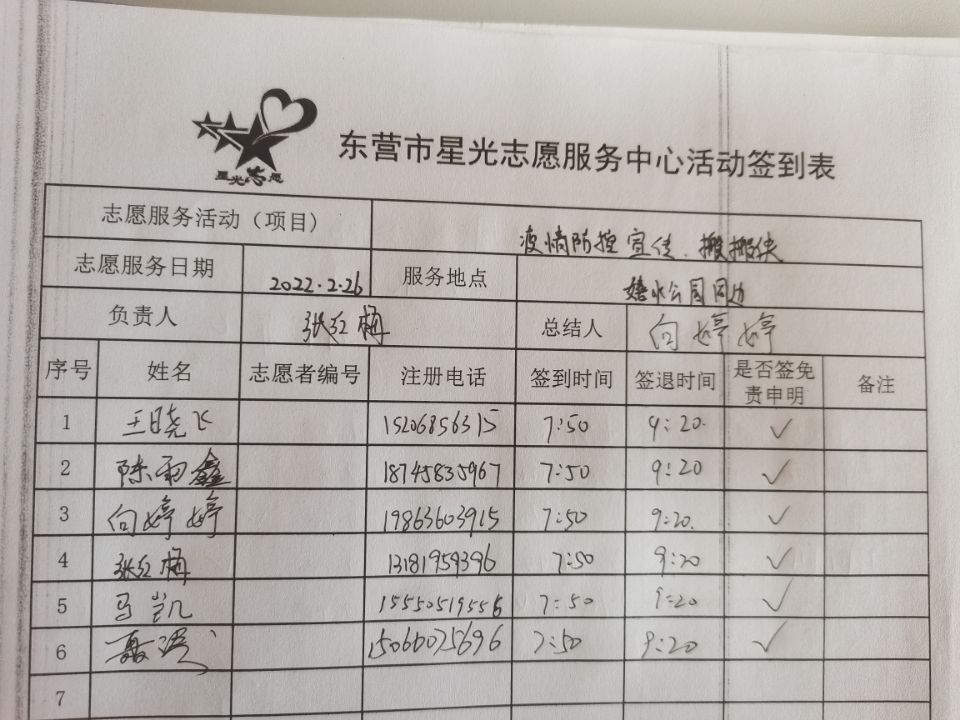 星光志愿
东营市星光志愿服务中心活动签到表
志愿服务活动（项目） 疫情防控宣传、搬搬侠
志愿服务日期 2022.2.26 服务地点 公园周边
负责人 张红梅 总结人 向婷婷
序号 姓名 志愿者编号 注册电话 签到时间 签退时间 是否签免责申明 备注
1 王晓飞 15206856315 7:50 9:20. ✓
2 陈雨鑫 18745835967 7:50 9:20 ✓
3 向婷婷 19863603915 7:50 9:20. ✓
4 张红梅 13181959396 7:50 9:20 ✓
5 马凯 15550519556 7:50 9:20 ✓
6 15066075696 7:50 9:20 ✓
7